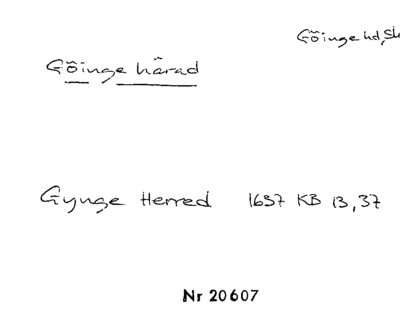 Göinge hd, Sk
Göinge härad
Gynge Herred 1637 KB 13,37
Nr 20607